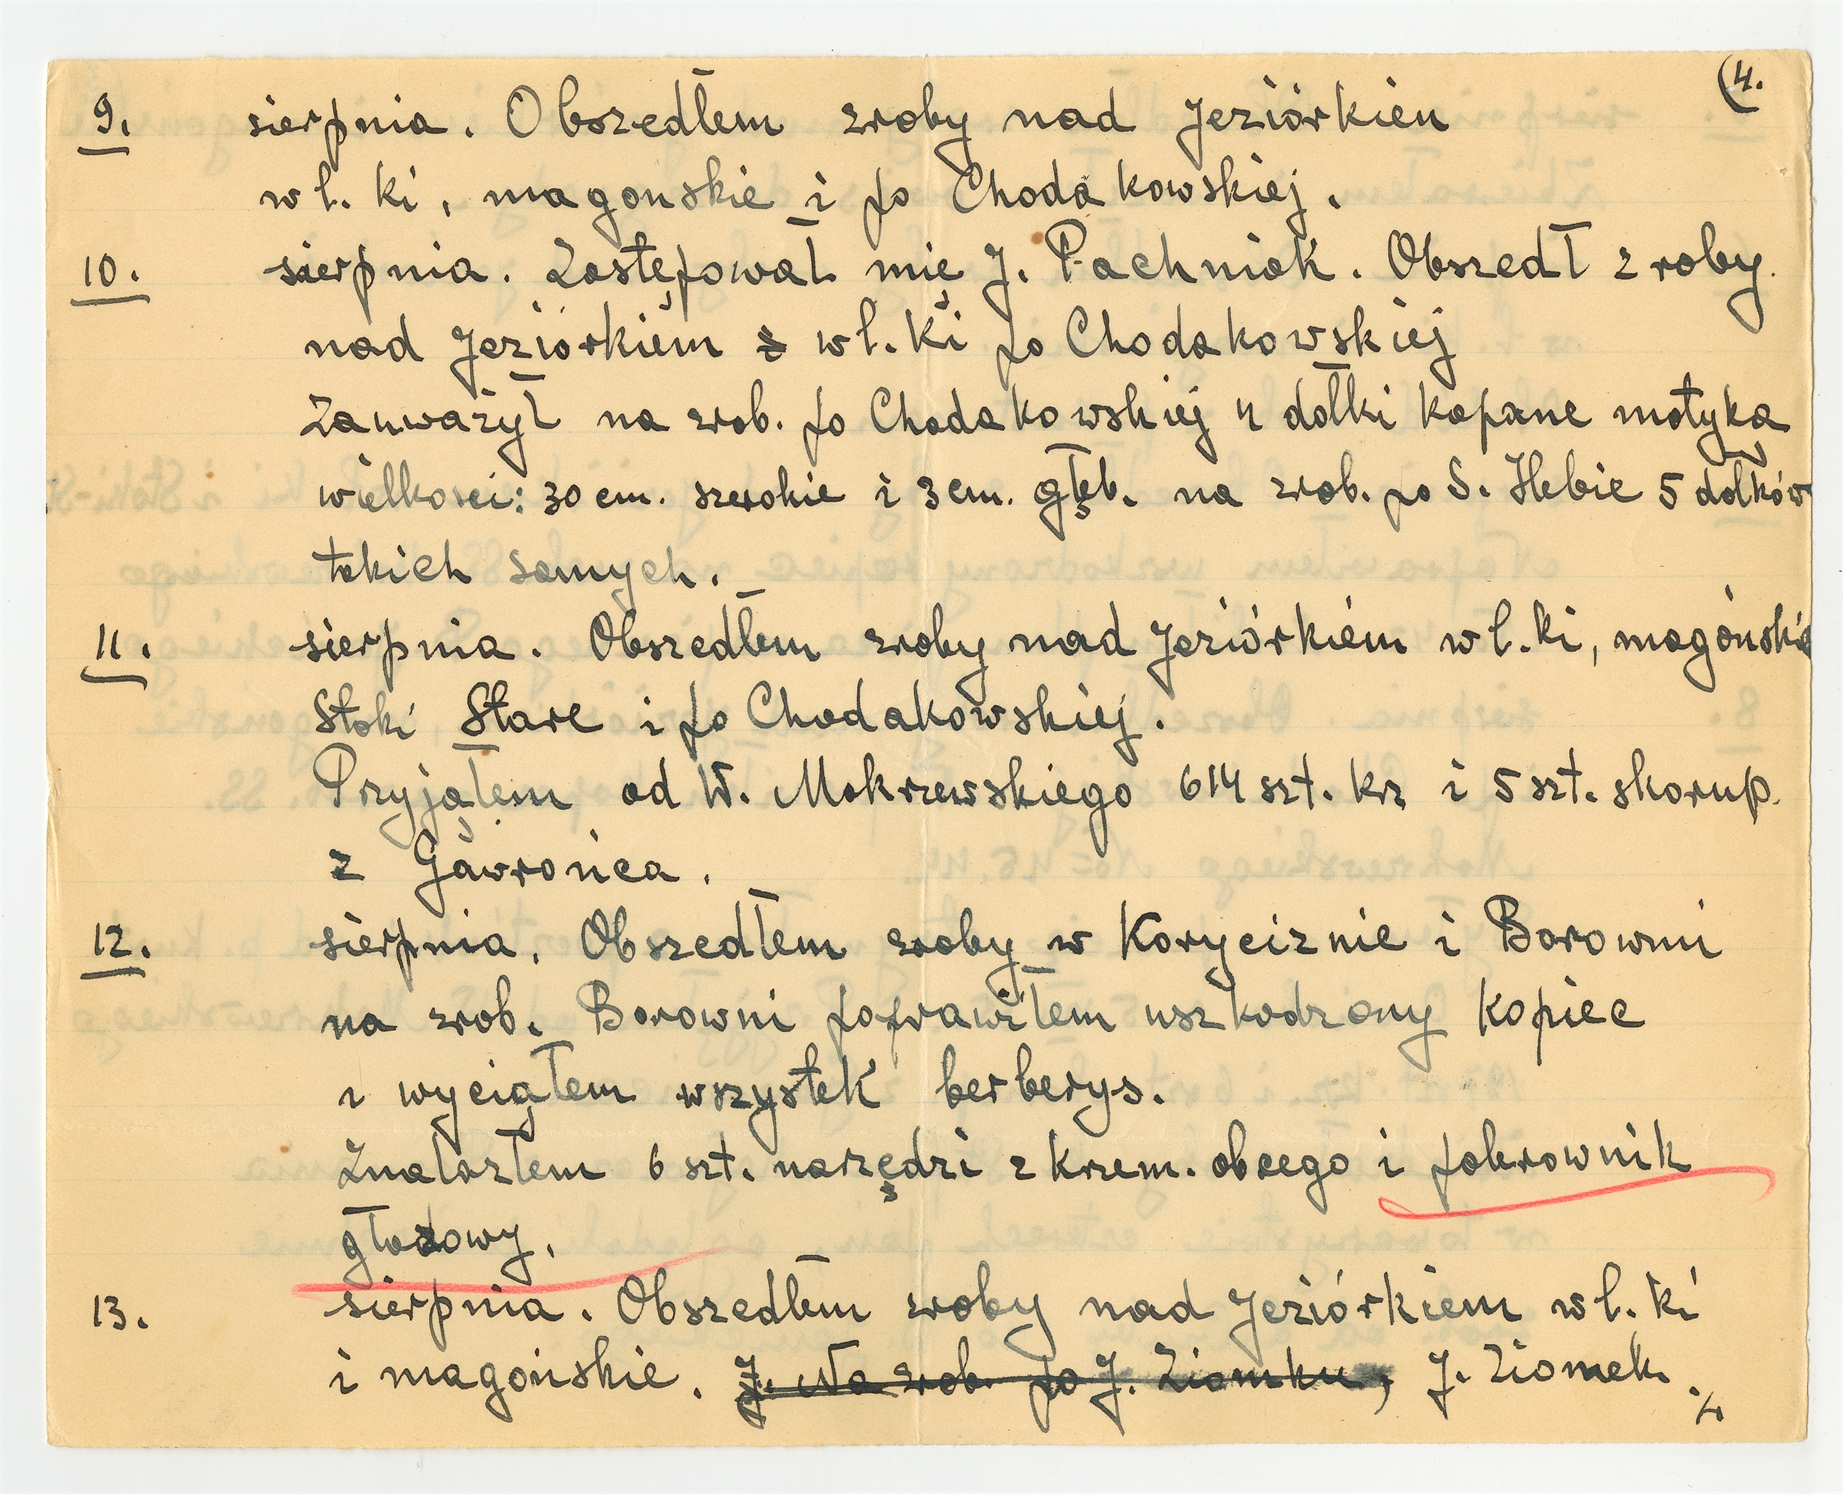 (4.
9. sierpnia. Obszedłem zroby nad Jeziórkien
wł. ki, magonskie i po Chodakowskiej.
10. sierpnia. Zastępował mię J. Pachniak. Obszedł zroby
nad Jeziórkiem wł. ki po Chodakowskiej
Zauważył na zrob. po Chodakowskiej 4 dołki kopane motyką
wielkości: 30 cm. szerokie i 3 cm. głęb. na zrob. po S. Hebie 5 dołków
takich samych.
11. sierpnia. Obszedłem zroby nad Jeziórkiem wł. ki, magońskie
Stoki Stare i po Chodakowskiej.
Przyjąłem od W. Mokrzewskiego 614 szt. krz i 5 szt. skorup.
z Gawrońca.
12. sierpnia. Obszedłem zroby w Koryciznie i Borowni
na zrob. Borowni poprawiłem uszkodzony kopiec
i wyciąłem wszystek berberys.
Znalazłem 6 szt. narzędzi z krzem. obcego i pobrownik
głazowy.
13. sierpnia. Obszedłem zroby nad Jeziórkiem wł. ki
i magońskie. J. Na zrob. po J. Ziomku, J. Ziomek.
./.